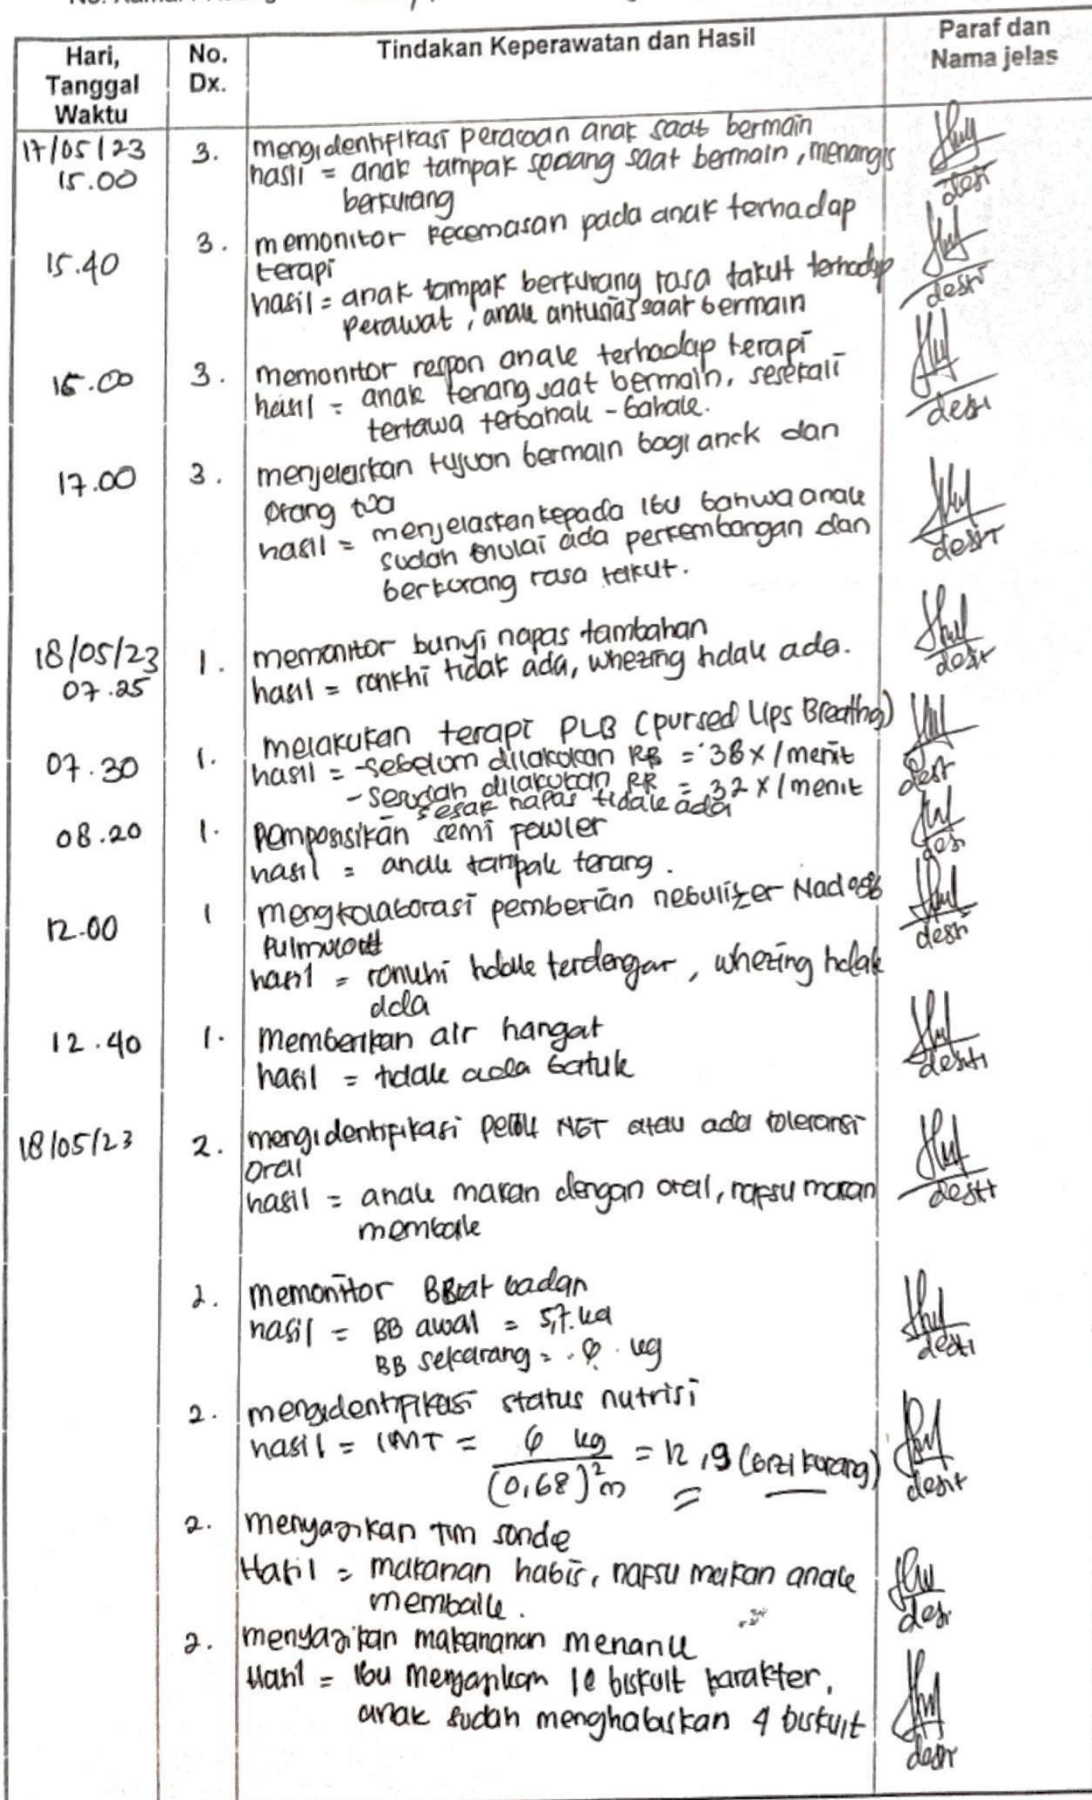 Hari, Tanggal Waktu | No. Dx. | Tindakan Keperawatan dan Hasil | Paraf dan Nama jelas
17/05/23 15.00 | 3. | mengidentifikasi perasaan anak saat bermain
hasil = anak tampak senang saat bermain, menangis
berkurang
desti
15.40 | 3. | memonitor kecemasan pada anak terhadap
terapi
hasil = anak tampak berkurang rasa takut terhadap
perawat, anak antusias saat bermain
desti
16.00 | 3. | memonitor respon anak terhadap terapi
hasil = anak tenang saat bermain, sesekali
tertawa terbahak - bahak.
desti
17.00 | 3. | menjelaskan tujuan bermain bagi anak dan
orang tua
hasil = menjelaskan kepada ibu bahwa anak
sudah mulai ada perkembangan dan
berkurang rasa takut.
desti
18/05/23 07.25 | 1. | memonitor bunyi napas tambahan
hasil = ronkhi tidak ada, whezing tidak ada.
desti
07.30 | 1. | melakukan terapi PLB (pursed Lips Breathg)
hasil = - sebelum dilakukan RR = 38 x / menit
- sesudah dilakukan RR = 32 x / menit
sesak napas tidak ada
desti
08.20 | 1. | Pemposisikan semi fowler
hasil = anak tampak tenang.
desti
12.00 | 1 | mengkolaborasi pemberian nebulizer Nacl
Pulmicort
hasil = ronkhi tidak terdengar, whezing tidak
ada
desti
12.40 | 1. | Memberikan air hangat
hasil = tidak ada batuk
desti
18/05/23 | 2. | mengidentifikasi perlu NGT atau ada toleransi
oral
hasil = anak makan dengan oral, napsu makan
membaik
desti
2. | memonitor badan
hasil = BB awal = 5,7 kg
BB sekarang = 6 kg
desti
2. | mengidentifikasi status nutrisi
hasil = IMT = 6 kg / (0,68)² m = 12,9 (Gizi kurang)
desti
2. | menyajikan Tim sonde
Hasil = makanan habis, napsu makan anak
membaik.
desti
2. | menyajikan makananan menarik
Hasil = Ibu menyiapkan 10 biskuit karakter,
anak sudah menghabiskan 4 biskuit
desti